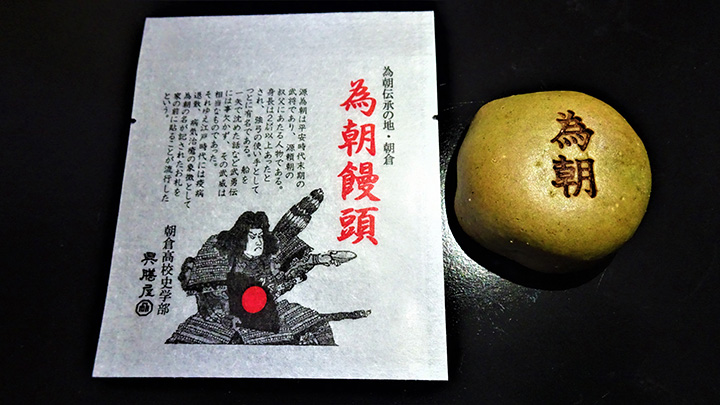 為朝伝承の地・朝倉
為朝饅頭
源為朝は平安時代末期の
武将であり、源頼朝の
叔父にあたる人物である。
身長は2㍍以上あったと
され、強弓の使い手として
つとに有名である。船を
一矢で沈めた話など武勇伝
には事欠かず、その武威は
相当なものであった。
それゆえ江戸時代には疫病
退散、病気治癒の象徴として
為朝の名が記されたお札を
家の前に貼ることが流行した
という。
朝倉高校史学部
興膳屋
為朝